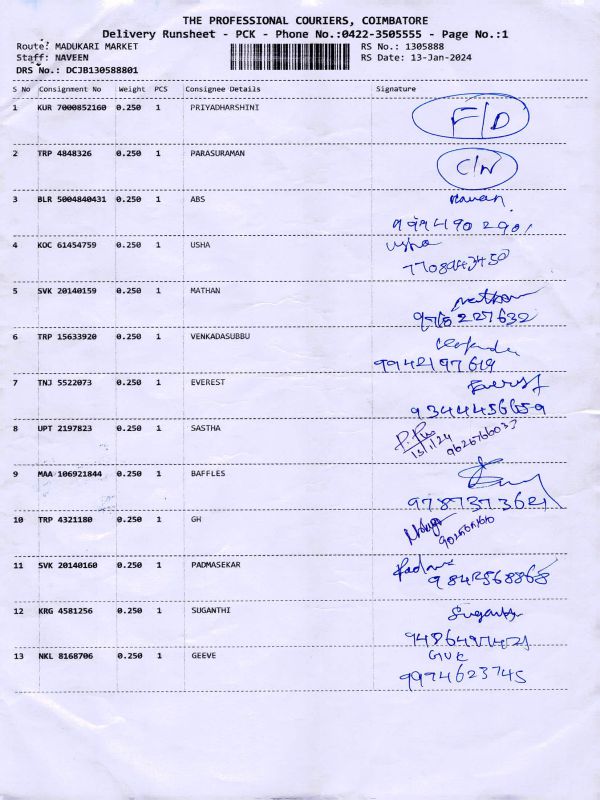 THE PROFESSIONAL COURIERS, COIMBATORE
Delivery Runsheet - PCK - Phone No.:0422-3505555 - Page No.:1
Route: MADUKARI MARKET RS No.: 1305888
Staff: NAVEEN RS Date: 13-Jan-2024
DRS No.: DCJB130588801
S No Consignment No Weight PCS Consignee Details Signature
1 KUR 7000852160 0.250 1 PRIYADHARSHINI F/D
2 TRP 4848326 0.250 1 PARASURAMAN C/N
3 BLR 5004840431 0.250 1 ABS
9994902901
4 KOC 61454759 0.250 1 USHA Usha
7708943450
5 SVK 20140159 0.250 1 MATHAN Mathan
9765227632
6 TRP 15633920 0.250 1 VENKADASUBBU
9942197619
7 TNJ 5522073 0.250 1 EVEREST Everest
9344456659
8 UPT 2197823 0.250 1 SASTHA
13/1/24
9 MAA 106921844 0.250 1 BAFFLES
9787373621
10 TRP 4321180 0.250 1 GH
11 SVK 20140160 0.250 1 PADMASEKAR
9842568868
12 KRG 4581256 0.250 1 SUGANTHI Suganthi
13 NKL 8168706 0.250 1 GEEVE
9974623745